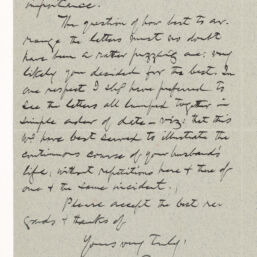 importance.
The question of how best to ar-
range the letters must no doubt
have been a rather puzzling one; very
likely you decided for the best. In
one respect I shd have preferred to
see the letters all lumped together in
simple order of date – viz: that this
wd have best served to illustrate the
continuous course of your husband's
life, without repetitions here & there of
one & the same incident.
Please accept the best re-
gards & thanks of
Yours very truly,